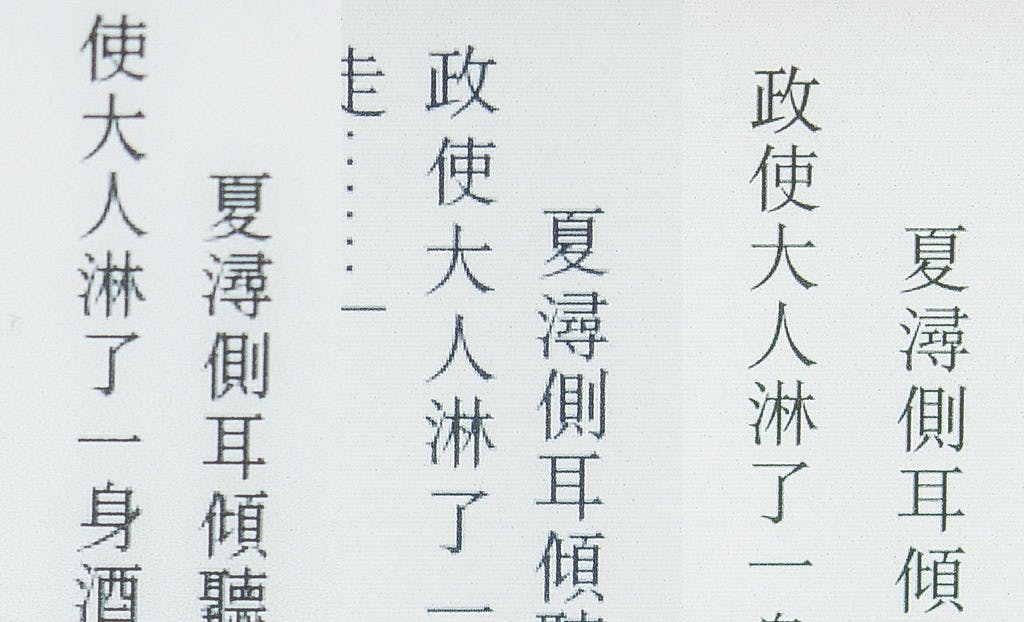 夏潯側耳傾聽
使大人淋了一身酒
夏潯側耳傾
政使大人淋了一
夏潯側耳傾
政使大人淋了一